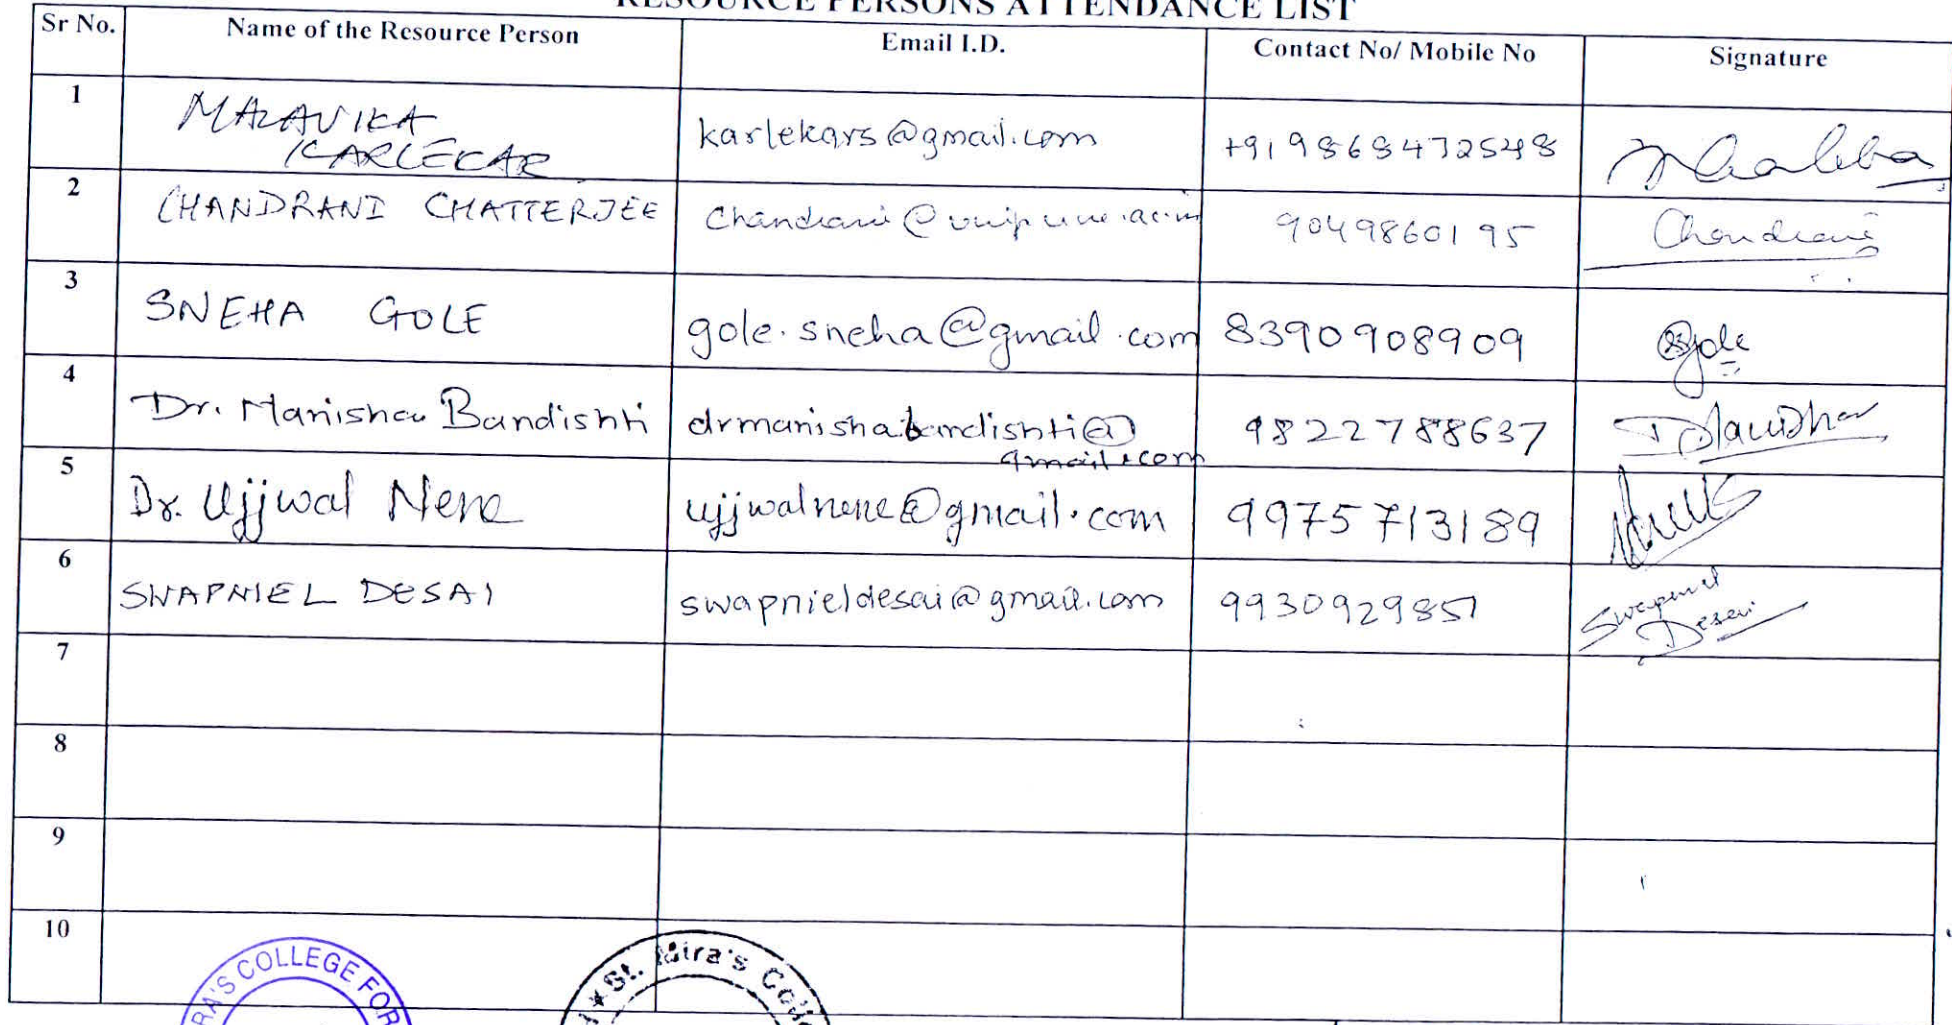 RESOURCE PERSONS ATTENDANCE LIST
Sr No. Name of the Resource Person Email I.D. Contact No/ Mobile No Signature
1 MALAVIKA KARLEKAR karlekars@gmail.com +919868472548
2 CHANDRANI CHATTERJEE Chandrani@unipune.ac.in 9049860195 Chandrani
3 SNEHA GOLE gole.sneha@gmail.com 8390908909 Sgole
4 Dr. Manisha Bandishti drmanishabandishti@ 9822788637
gmail.com
5 Dr. Ujjwal Nene ujjwalnene@gmail.com 9975713189
6 SWAPNIEL DESAI swapnieldesai@gmail.com 9930929851 Swapniel
Desai
7
8
9
10
RA'S COLLEGE FOR
St. Mira's Colle